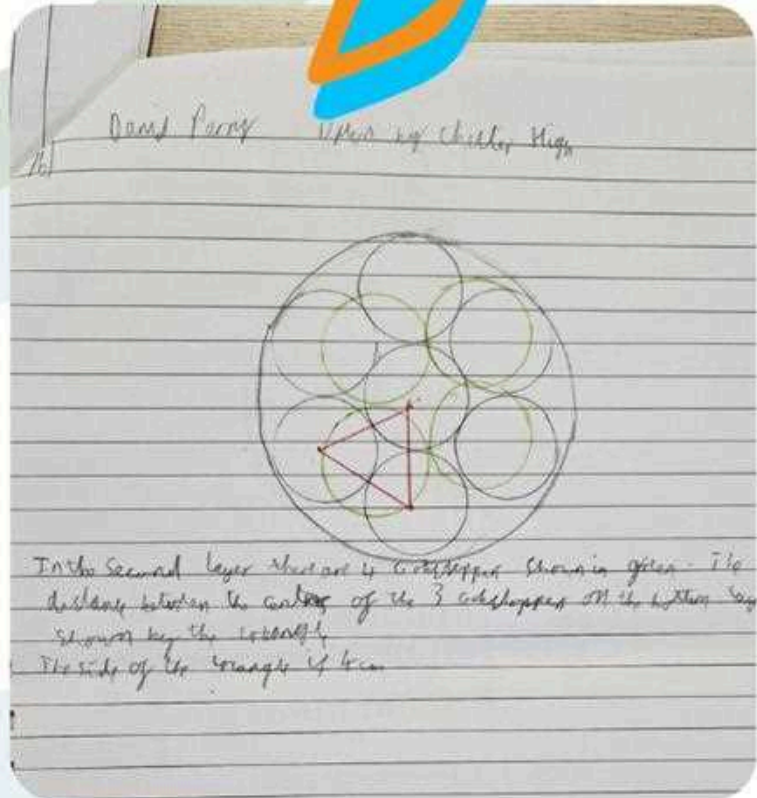 David
High
16
In the Second layer there are 4 Gobstopper shown in green. The
distance between the centres of the 3 gobstopper on the bottom
shown by the triangle
The side of the triangle is 4cm